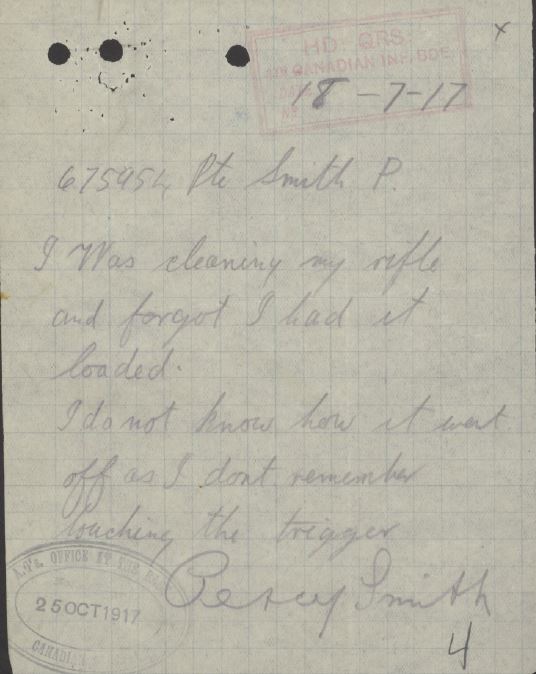 x
HD-QRS.
CANADIAN INF. BDE
18-7-17
675954 Pte Smith P.
I Was cleaning my rifle
and forgot I had it
loaded.
I do not know how it went
off as I dont remember
touching the trigger
Percy Smith
OFFICE AT THE
25 OCT 1917
CANADIAN
4